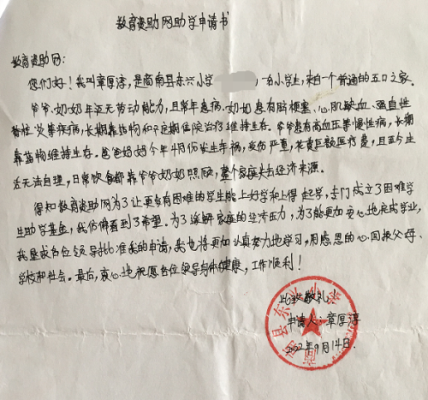 教育资助网助学申请书
教育资助网：
您们好！我叫章厚淳，是商南县东兴小学 一名小学生，来自一个普通的五口之家。
爷爷、奶奶年迈无劳动能力，且常年患病，奶奶患有脑梗塞、心肌缺血、强直性
脊柱炎等疾病，长期靠药物和不定期住院治疗维持生存。爷爷患有高血压等慢性病，长期
靠药物维持生存。爸爸妈妈今年4月份发生车祸，受伤严重，花费巨额医疗费，且至今生
活无法自理，日常饮食都靠爷爷奶奶照顾，整个家庭失去经济来源。
得知教育资助网为了让更多有困难的学生能上好学和上得起学，专门成立了困难学
生助学基金，我仿佛看到了希望。为了缓解家庭的经济压力，为了能更加安心地完成学业，
我恳求各位领导批准我的申请，我也将更加认真努力地学习，用感恩的心回报父母、
学校和社会。最后，衷心地祝愿各位领导身体健康，工作顺利！
此致敬礼
申请人：章厚淳
2022年9月14日